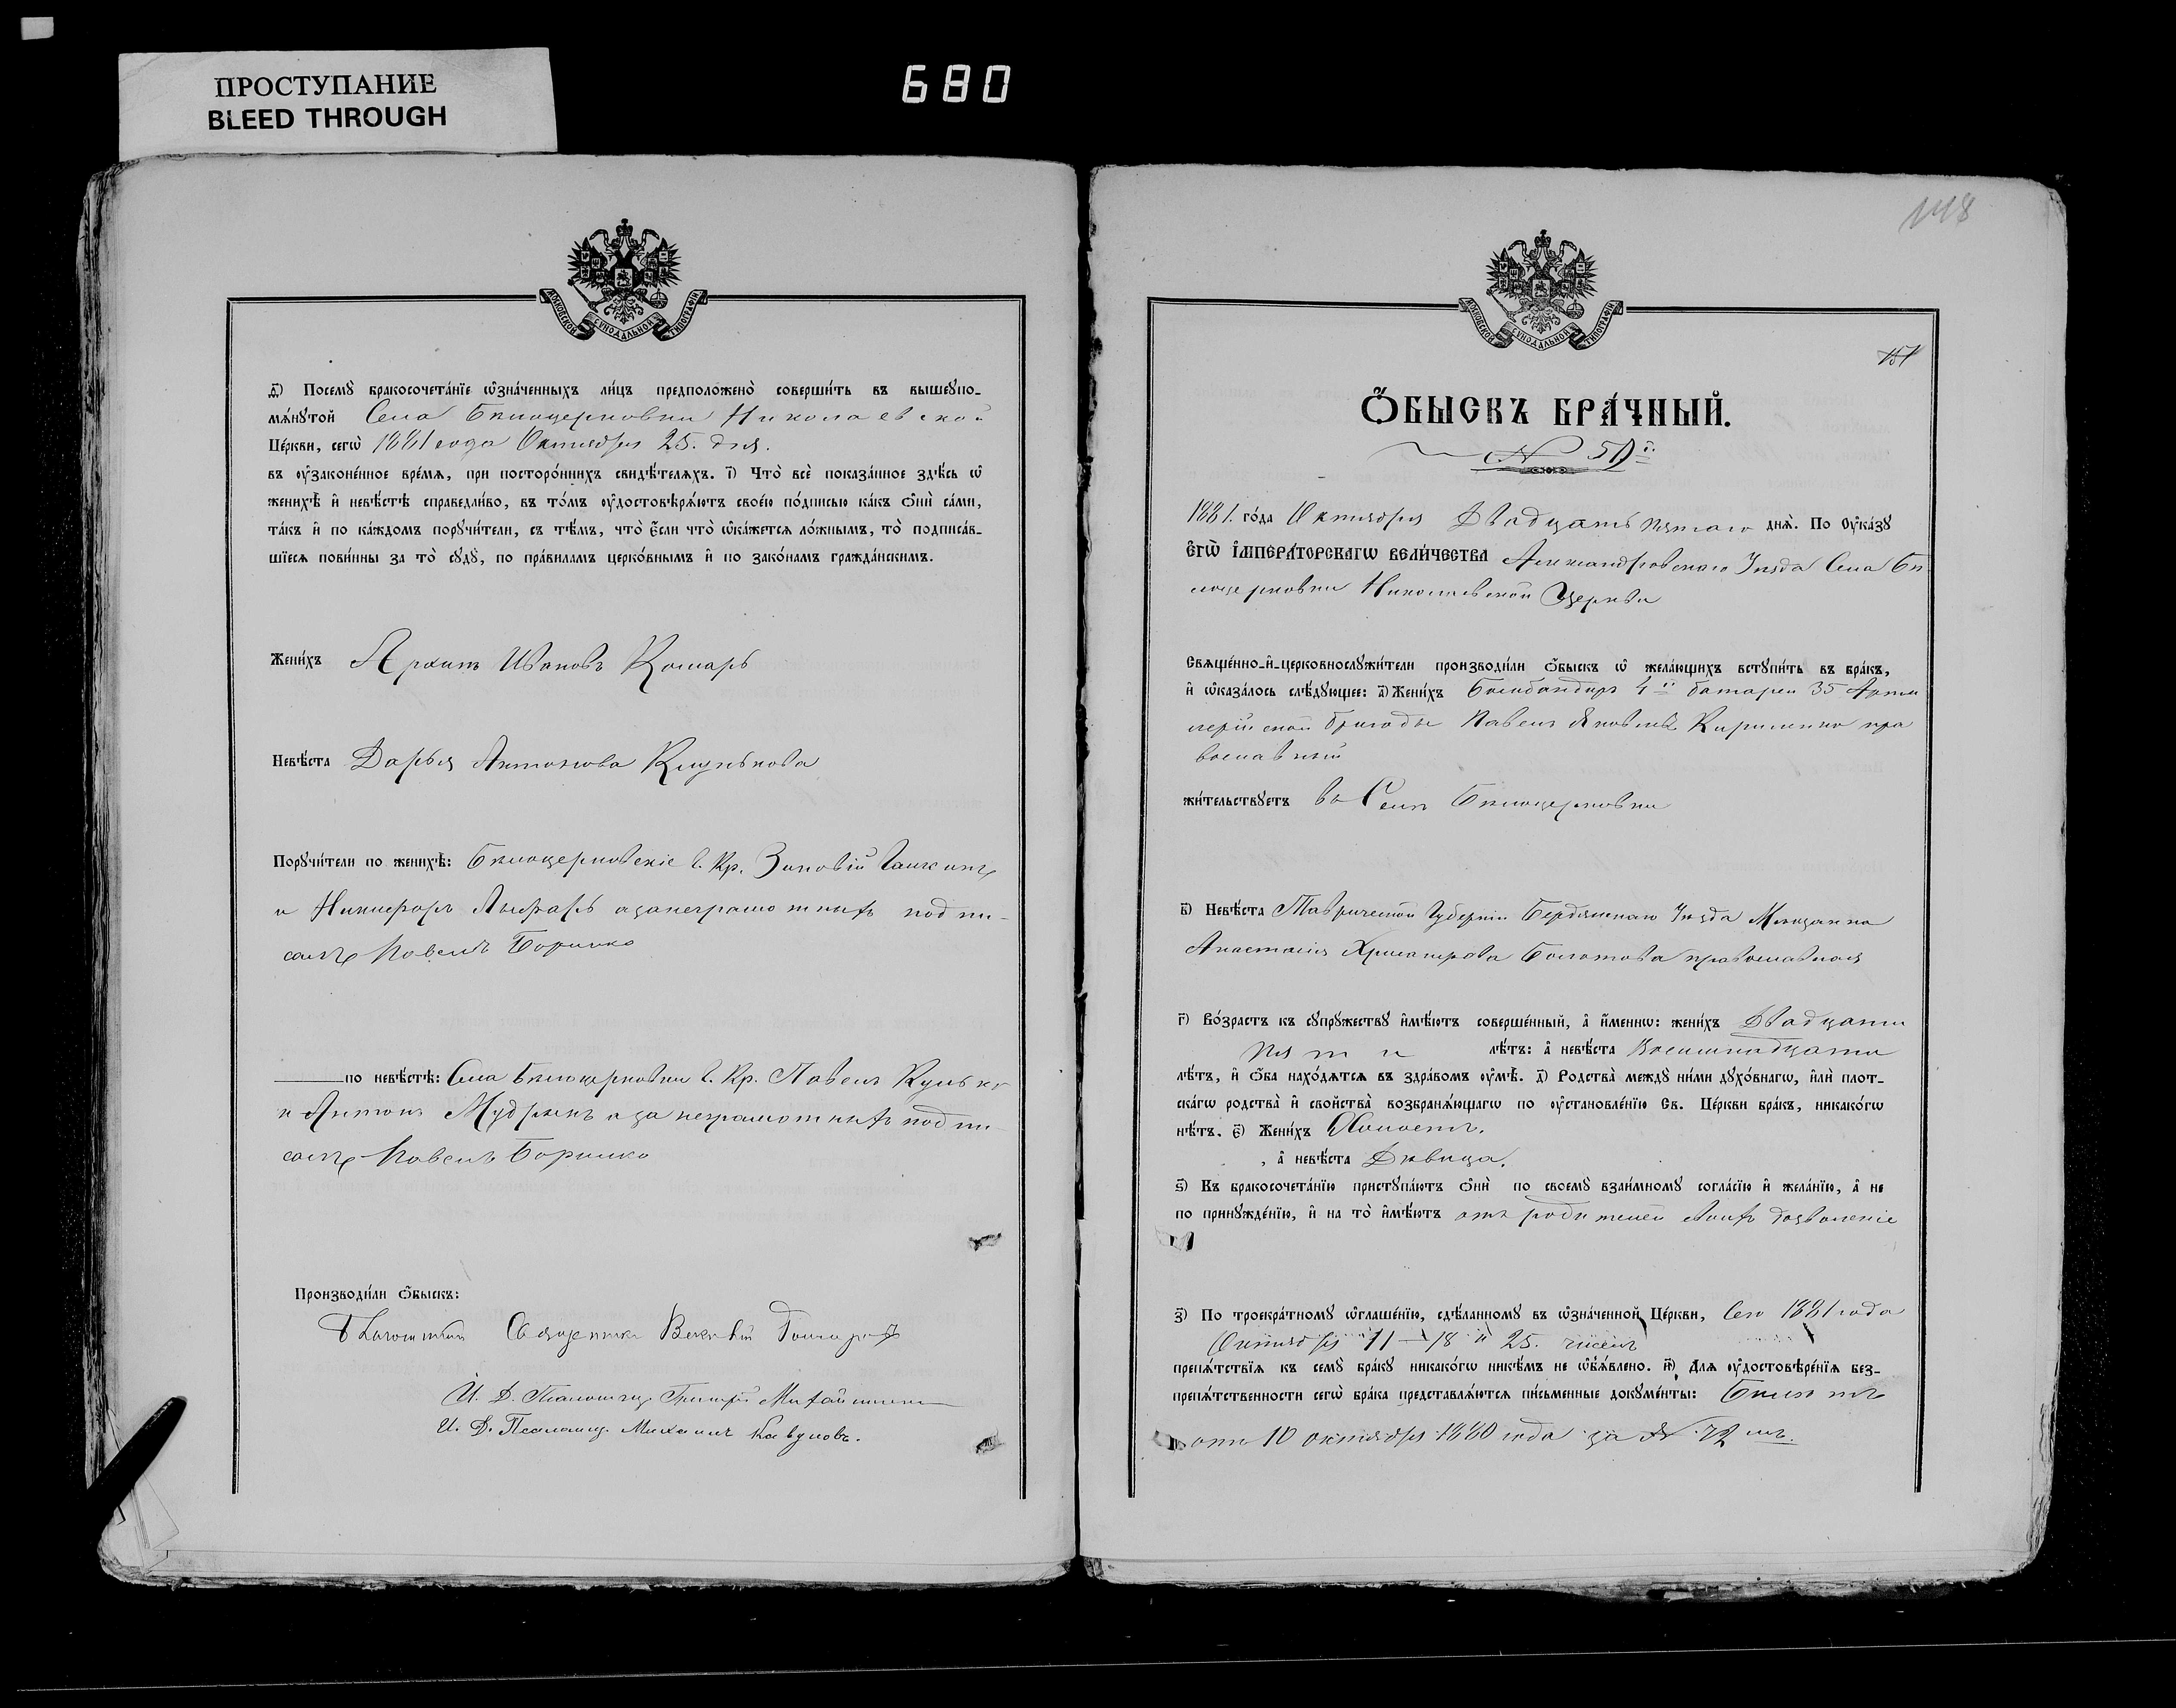 ПРОСТУПАНИЕ
BLEED THROUGH
680
МОСКОВСКОЙ СѴНОДАЛЬНОЙ ТИПОГРАФІИ
д҃) Посемꙋ̀ бракосочета́нїе ѡ҆зна́ченныхъ ли́цъ предполо́жено̀ соверши́ть въ вышеꙋпо-
мѧ́нꙋтой Села Бѣлоцерковки Николаевской
Це́ркви, сегѡ̀ 1881 года Октября 25. дня.
въ ᲂу҆законе́нное вре́мѧ, при посторо́ннихъ свидѣ́телѧхъ. і҃) Что̀ всѐ показа́нное здѣ́сь ѡ҆
женихѣ̀ и҆ невѣ́стѣ справедли́во, въ то́мъ ᲂу҆достовѣрѧ́ютъ свое́ю по́дписью ка́къ ѻ҆нѝ са́ми,
та́къ и҆ по ка́ждомъ порꙋчи́тели, съ тѣ́мъ, что̀ є҆́сли что̀ ѡ҆ка́жетсѧ ло́жнымъ, то̀ подписа́в-
шїесѧ пови́нны за то̀ сꙋдꙋ̀, по пра́виламъ церко́внымъ и҆ по зако́намъ гражда́нскимъ.
Жени́хъ Архипъ Ивановъ Комаръ
Невѣ́ста Дарья Антонова
Порꙋчи́тели по женихѣ̀: Бѣлоцерковскіе Г. Кр. Зиновій
и Никифоръ Лымарь а за неграмотныхъ подпи-
салъ Павелъ Боришко
по невѣ́стѣ: Села Бѣлоцерковки Г. Кр. Павелъ
и Антонъ а за неграмотныхъ подпи-
салъ Павелъ Боришко
Производи́ли ѻ҆́быскъ:
Священникъ
И. Д. Псаломщ.
И. Д. Псаломщ. Михаилъ Кавуновъ.
148
151
МОСКОВСКОЙ СѴНОДАЛЬНОЙ ТИПОГРАФІИ
Ѻ҆́БЫСКЪ БРА́ЧНЫЙ.
№ 50й
1881. го́да Октября Двадцать пятаго днѧ̀. По Оу҆ка́зꙋ
Є҆гѡ̀ И҆мпера́торскагѡ вели́чества Александровскаго Уѣзда Села Бѣ
лоцерковки Николаевской Церкви
Свѧще́нно-и҆-церковнослꙋжи́тели производи́ли ѻ҆́быскъ ѡ҆ жела́ющихъ встꙋпи́ть въ бра́къ,
и҆ ѡ҆каза́лось слѣ́дꙋющее: а҃) Жени́хъ Бомбандиръ 4й батареи 35 Артил
лерійской бригады Павелъ Яковлевъ Кириленко пра
вославный
жи́тельствꙋетъ въ Селѣ Бѣлоцерковки
в҃) Невѣ́ста Таврической Губерніи Бердянскаго Уѣзда Мѣщанка
Анастасія Хрисанфова Болотова православная
г҃) Во́зрастъ къ сꙋпрꙋжествꙋ̀ и҆мѣ́ютъ соверше́нный, а҆ и҆́меннѡ: жени́хъ Двадцати
пяти лѣ́тъ: а҆ невѣ́ста Восемнадцати
лѣ́тъ, и҆ ѻ҆́ба нахо́дѧтсѧ въ здра́вомъ ᲂу҆мѣ̀. д҃) Родства̀ междꙋ̀ ни́ми дꙋхо́внагѡ, и҆лѝ плот-
ска́гѡ родства̀ и҆ свойства̀ возбранѧ́ющагѡ по ᲂу҆становле́нїю Св. Це́ркви бра́къ, никако́гѡ
нѣ́тъ. є҃) Жени́хъ Холостъ.
, а҆ невѣ́ста Дѣвица.
ѕ҃) Къ бракосочета́нїю пристꙋпа́ютъ ѻ҆нѝ по своемꙋ̀ взаи́мномꙋ согла́сїю и҆ жела́нїю, а҆ не
по принꙋжде́нїю, и҆ на то̀ и҆мѣ́ютъ отъ родителей дозволеніе
з҃) По троекра́тномꙋ ѡ҆глаше́нїю, сдѣ́ланномꙋ въ ѡ҆зна́ченной Це́ркви, Сего 1881 года
Октября 11 – 18 и 25. числъ
препѧ́тствїѧ къ семꙋ̀ бра́кꙋ никако́гѡ никѣ́мъ не ѡ҆б̾ѧ́влено. и҃) Длѧ ᲂу҆достовѣре́нїѧ без-
препѧ́тственности сегѡ̀ бра́ка представлѧ́ютсѧ пи́сьменные докꙋме́нты: Билетъ
отъ 10 октября 1880 года за № 72